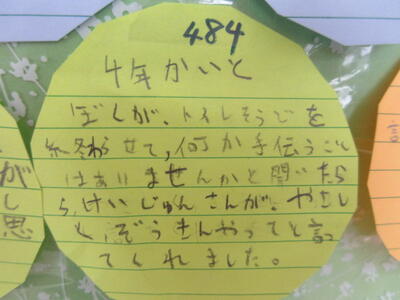 484
4年かいと
ぼくが、トイレそうじを
終わらせて,何か手伝うこと
はありませんかと聞いたら
ら,けいじゅんさんが、やさし
く,ぞうきんやってと言っ
てくれました。
が
し
思